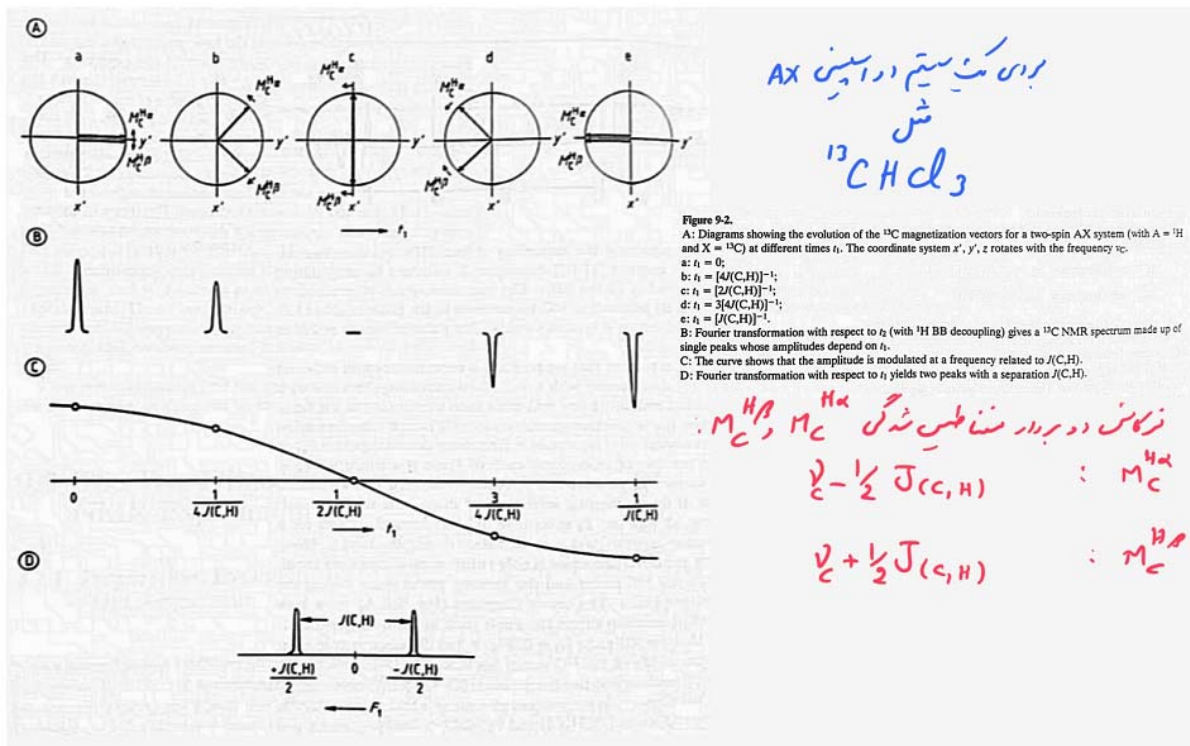 A
a b c d e
M_C^{Hα} M_C^{Hα} M_C^{Hα} M_C^{Hα} M_C^{Hα}
y' y' y' y' y'
M_C^{Hβ} M_C^{Hβ} M_C^{Hβ} M_C^{Hβ} M_C^{Hβ}
x' x' x' x' x'
t₁
B
C
0 1/4J(C,H) 1/2J(C,H) 3/4J(C,H) 1/J(C,H)
t₁
D
J(C,H)
+J(C,H)/2 0 -J(C,H)/2
F₁
برای یک سیستم دو اسپینی AX
مثل
¹³CHCl₃
Figure 9-2.
A: Diagrams showing the evolution of the ¹³C magnetization vectors for a two-spin AX system (with A = ¹H
and X = ¹³C) at different times t₁. The coordinate system x', y', z rotates with the frequency ν_C.
a: t₁ = 0;
b: t₁ = [4J(C,H)]⁻¹;
c: t₁ = [2J(C,H)]⁻¹;
d: t₁ = 3[4J(C,H)]⁻¹;
e: t₁ = [J(C,H)]⁻¹.
B: Fourier transformation with respect to t₂ (with ¹H BB decoupling) gives a ¹³C NMR spectrum made up of
single peaks whose amplitudes depend on t₁.
C: The curve shows that the amplitude is modulated at a frequency related to J(C,H).
D: Fourier transformation with respect to t₁ yields two peaks with a separation J(C,H).
فرکانس دو بردار مغناطیس شدگی M_C^{Hα} و M_C^{Hβ} :
M_C^{Hα} : ν_C - ½ J(C,H)
M_C^{Hβ} : ν_C + ½ J(C,H)